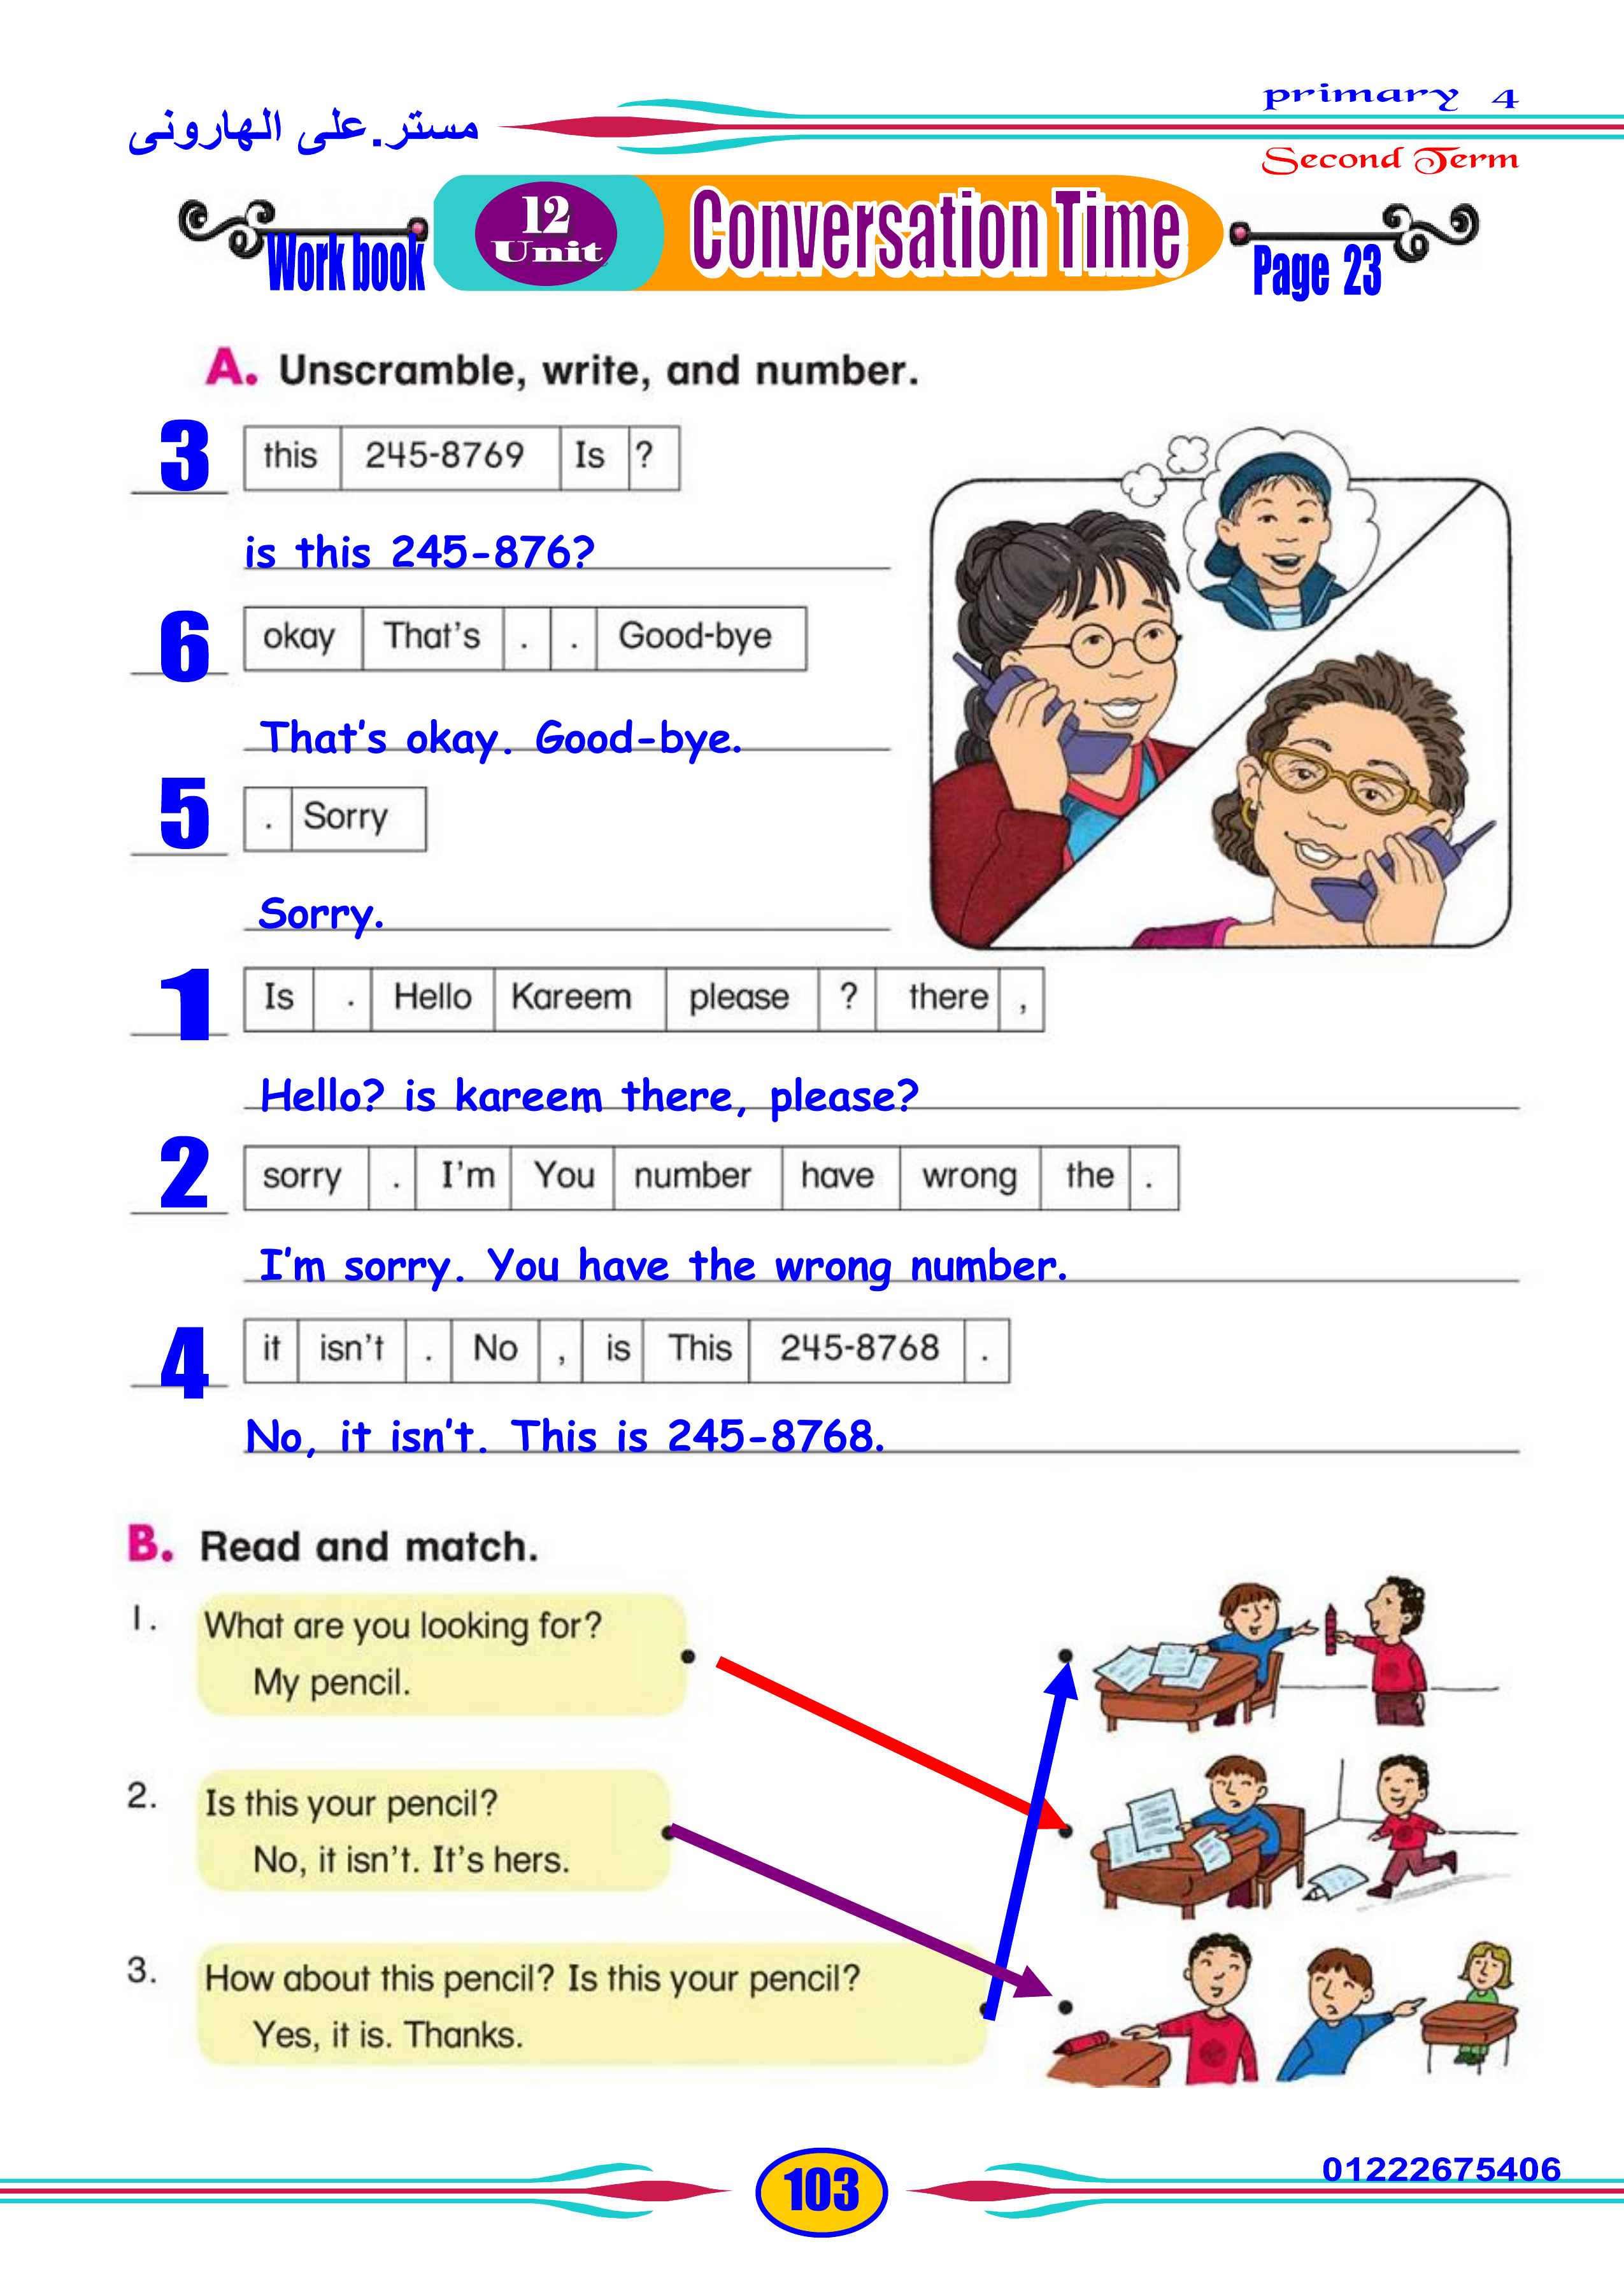 مستر.على الهارونى
primary 4
Second Term
Work book
12
Unit
Conversation Time
Page 23
A. Unscramble, write, and number.
3 this 245-8769 Is ?
is this 245-876?
6 okay That's . . Good-bye
That's okay. Good-bye.
5 . Sorry
Sorry.
1 Is . Hello Kareem please ? there ,
Hello? is kareem there, please?
2 sorry . I'm You number have wrong the .
I'm sorry. You have the wrong number.
4 it isn't . No , is This 245-8768 .
No, it isn't. This is 245-8768.
B. Read and match.
1. What are you looking for?
My pencil.
2. Is this your pencil?
No, it isn't. It's hers.
3. How about this pencil? Is this your pencil?
Yes, it is. Thanks.
103
01222675406